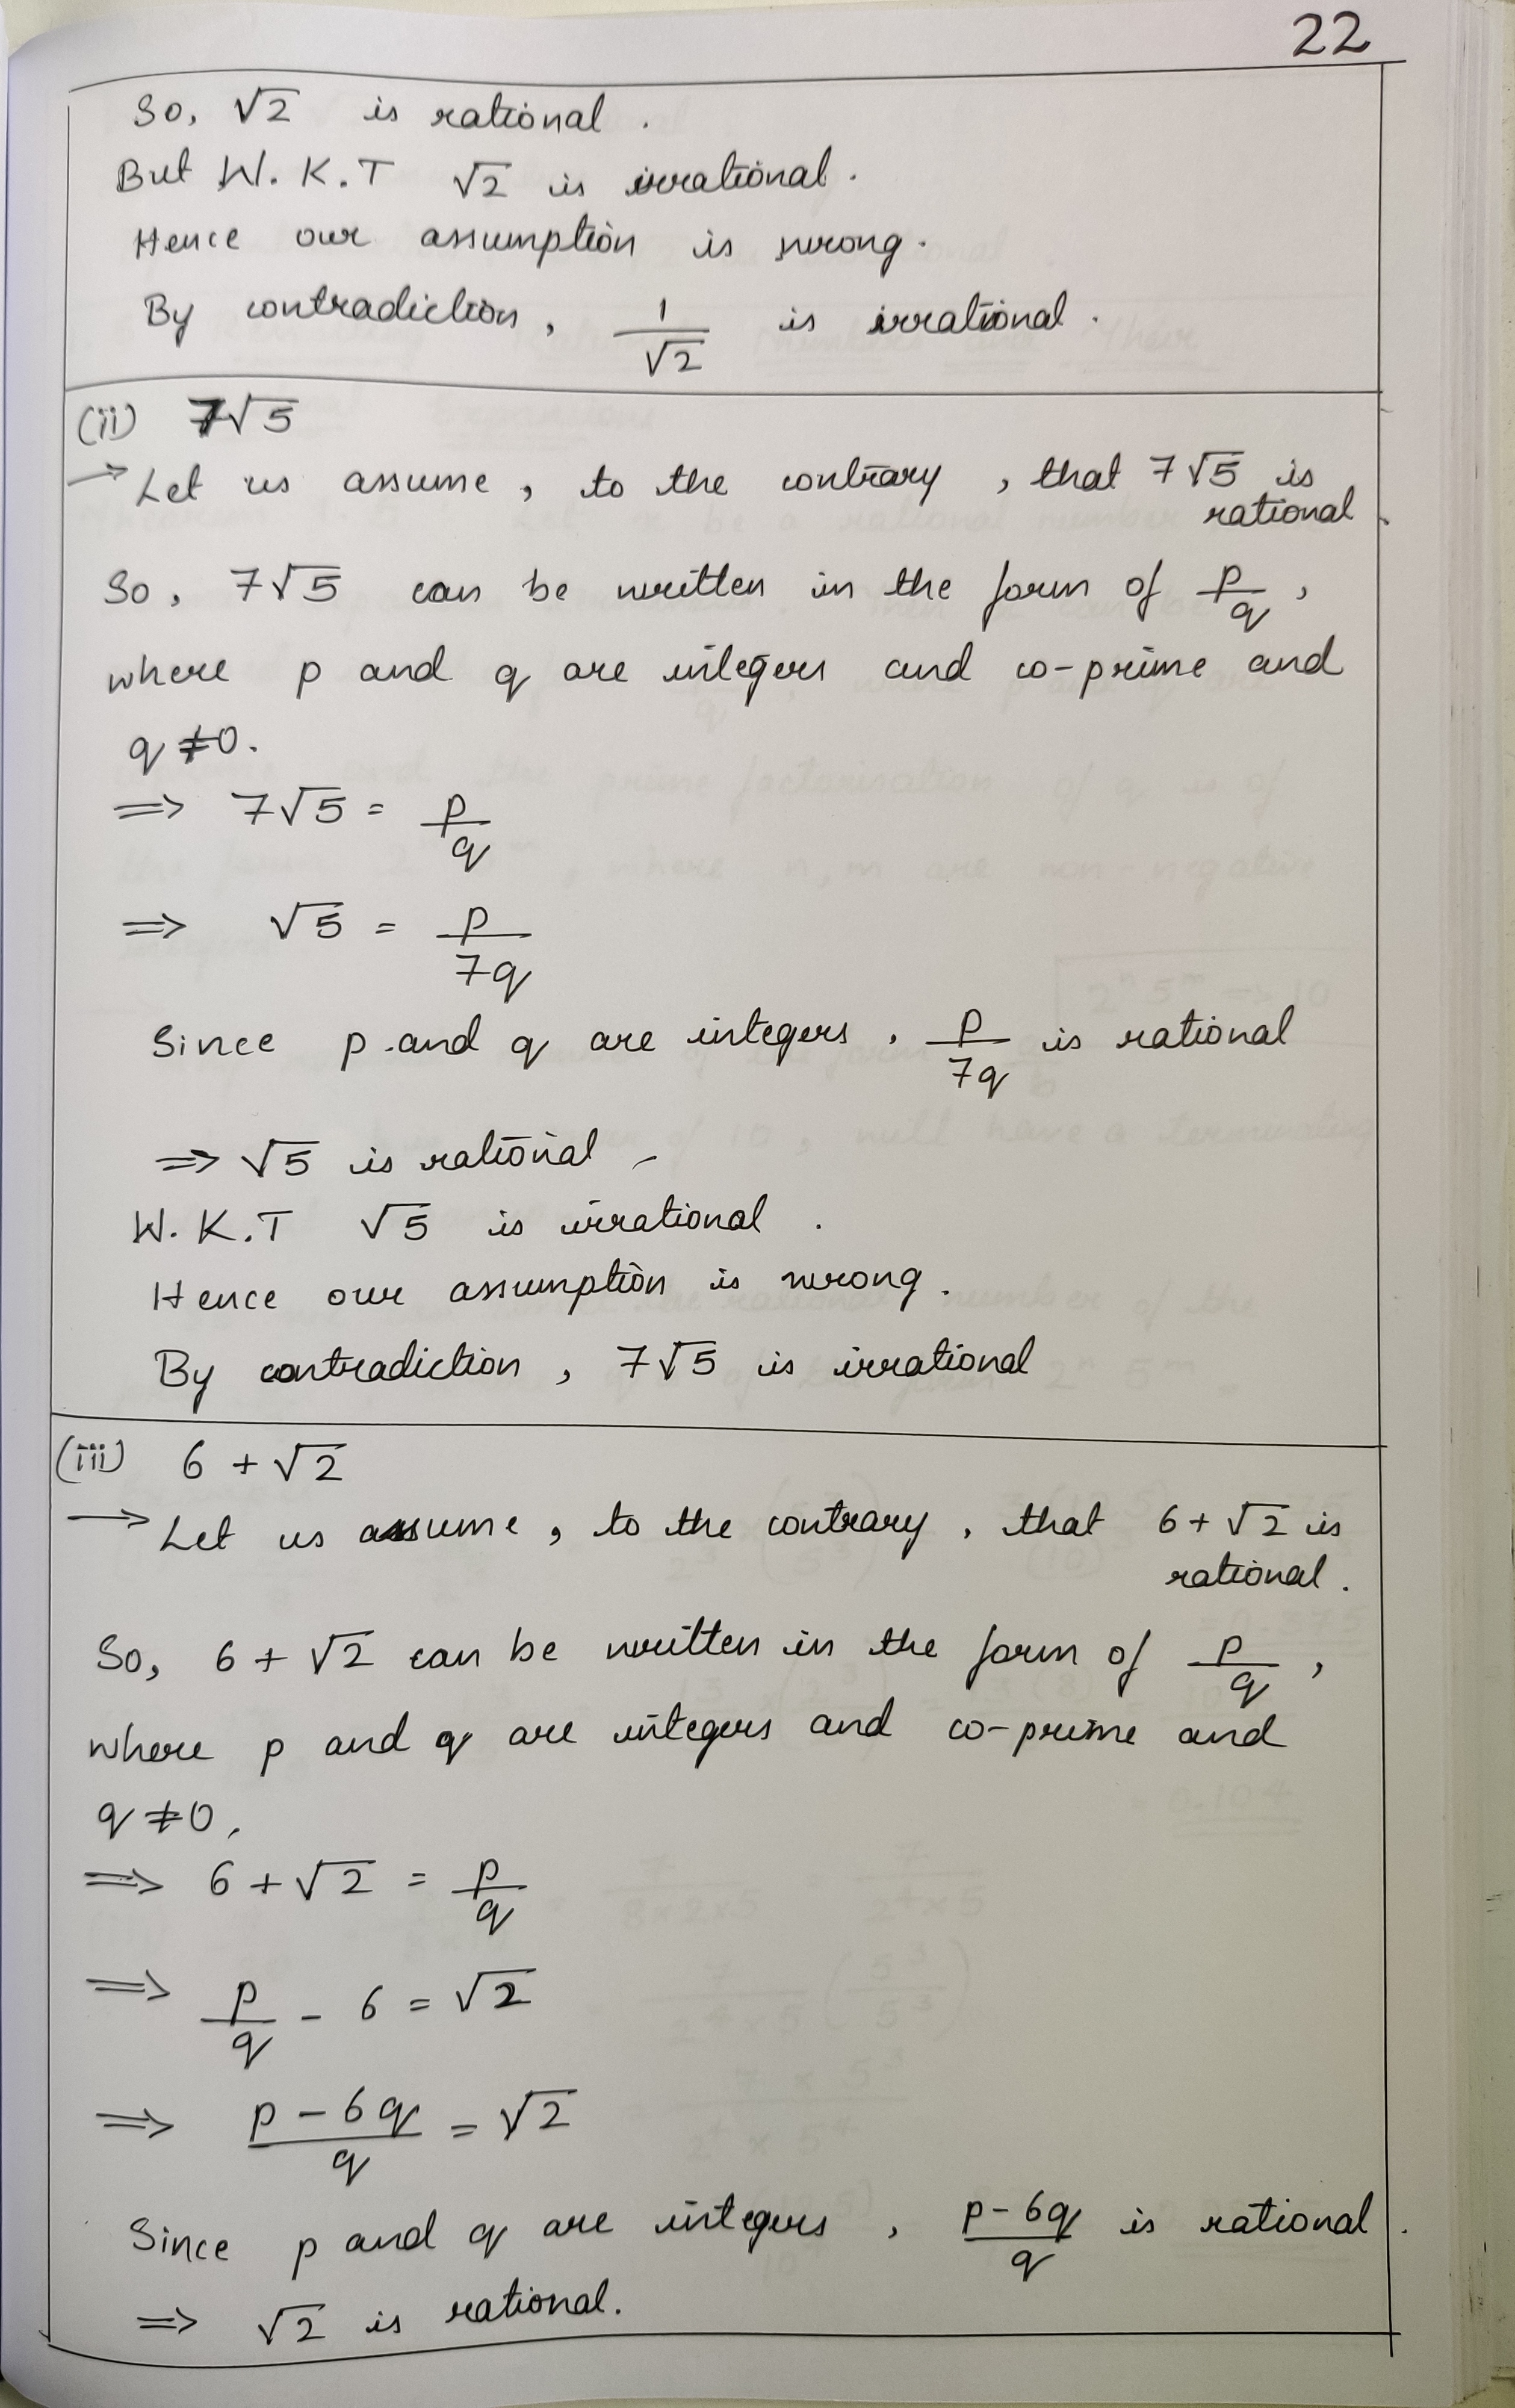 22
So, √2 is rational.
But W.K.T √2 is irrational.
Hence our assumption is wrong.
By contradiction, 1/√2 is irrational.
(ii) 7√5
→ Let us assume, to the contrary, that 7√5 is
rational.
So, 7√5 can be written in the form of p/q,
where p and q are integers and co-prime and
q ≠ 0.
⇒ 7√5 = p/q
⇒ √5 = p/7q
Since p and q are integers, p/7q is rational
⇒ √5 is rational
W.K.T √5 is irrational.
Hence our assumption is wrong.
By contradiction, 7√5 is irrational
(iii) 6 + √2
→ Let us assume, to the contrary, that 6+√2 is
rational.
So, 6 + √2 can be written in the form of p/q,
where p and q are integers and co-prime and
q ≠ 0,
⇒ 6 + √2 = p/q
⇒ p/q - 6 = √2
⇒ p - 6q/q = √2
Since p and q are integers, p - 6q/q is rational.
⇒ √2 is rational.